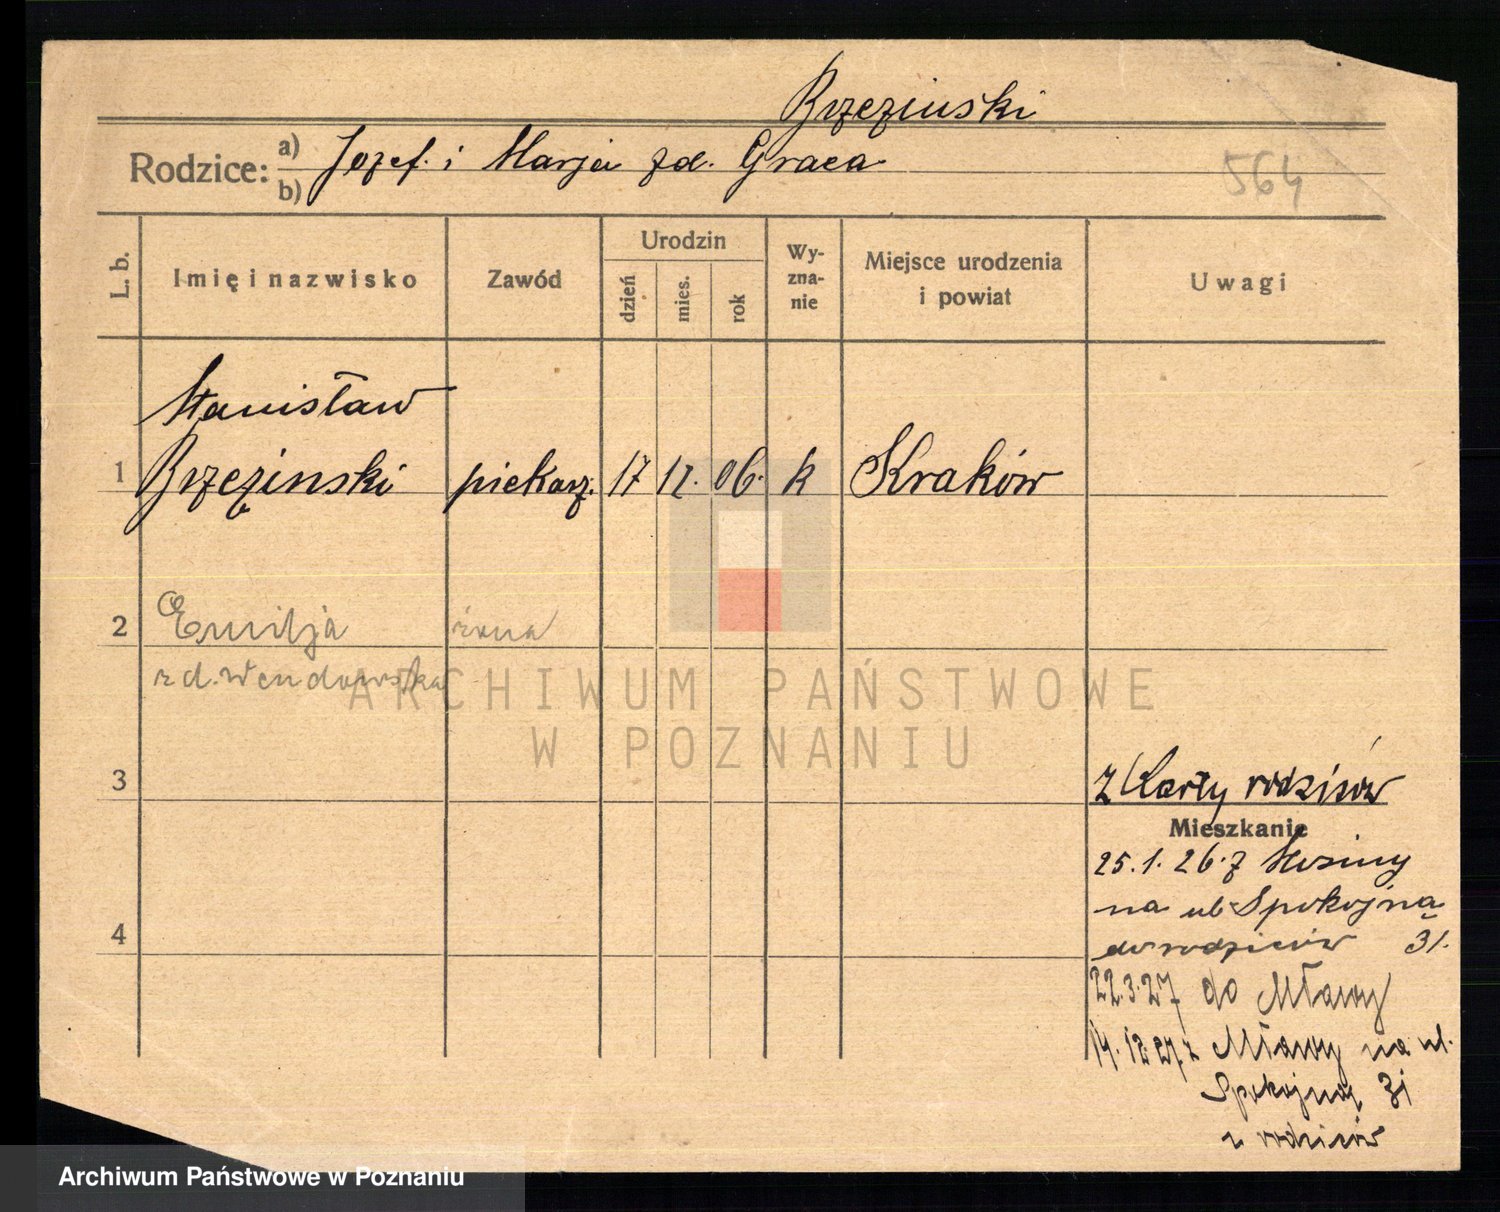 Brzezinski
Rodzice: a) b) Jozef. i Marja zd. Graca
564
L. b.
Imię i nazwisko
Zawód
Urodzin
dzień
mies.
rok
Wy-
zna-
nie
Miejsce urodzenia
i powiat
Uwagi
Stanisław
1 Brzeziński piekarz. 17 12. 06. k Kraków
2 Emilja żona
zd. Wendowska
3
z Karty rodziców
Mieszkanie
25.1.26. z
na ul Spokojną
4
do rodziców 31.
22.3.27 do Mławy
14.12.27 z Mławy na ul.
Spokojną 31
u rodziców
ARCHIWUM PAŃSTWOWE
W POZNANIU
Archiwum Państwowe w Poznaniu